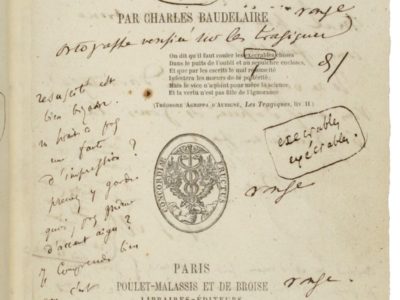 PAR CHARLES BAUDELAIRE
rouge
ortographe verifiée sur les tragiques
On dit qu'il faut couler les execrables choses
Dans le puits de l'oubli et au sepulchre encloses,
Et que par les escrits le mal resuscité
Infectera les mœurs de la postérité;
Mais le vice n'a point pour mère la science,
Et la vertu n'est pas fille de l'ignorance
(THÉODORE AGRIPPA D'AUBIGNÉ, Les Tragiques, liv. II)
resuscité est
bien bizarre.
faute
d'impression ?
prenez y garde
d'accent aigu ?
execrables
exécrables.
CONCORDIÆ FRUCTUS
rouge
PARIS
POULET-MALASSIS ET DE BROISE
LIBRAIRES-ÉDITEURS
rouge.